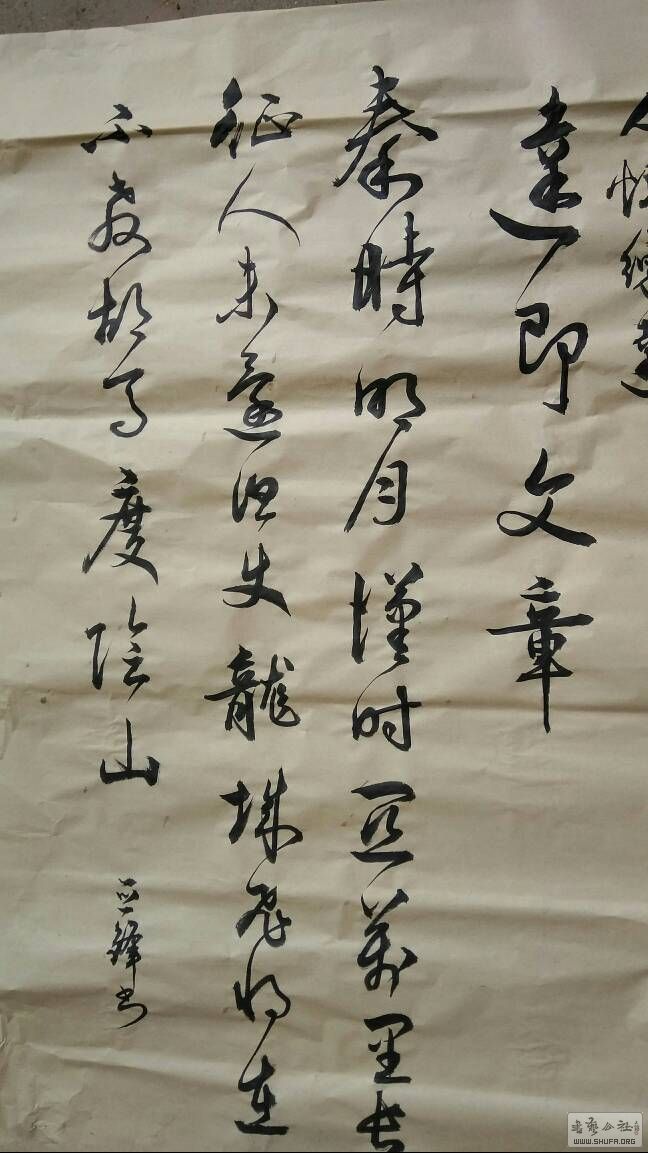 人情練達
達即文章
秦時明月漢时關萬里長
征人未還但使龍城飛将在
不教胡马度陰山
鋒书
書藝公社
WWW.SHUFA.ORG